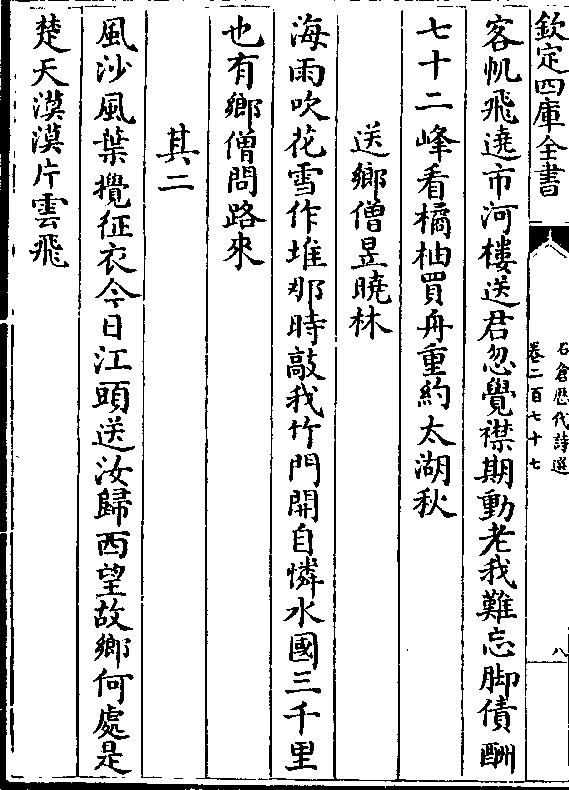 欽定四庫全書
石倉歷代詩選
卷二百七十七
八
客帆飛遶市河樓送君忽覺襟期動老我難忘脚債酬
七十二峰看橘柚買舟重約太湖秋
送鄉僧昱曉林
海雨吹花雪作堆那時敲我竹門開自憐水國三千里
也有鄉僧問路來
其二
風沙風葉攪征衣今日江頭送汝歸西望故鄉何處是
楚天漠漠片雲飛